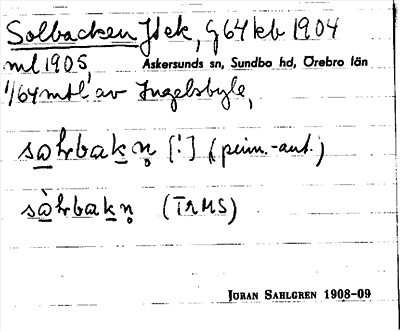 Solbacken Jlek, g 64 kb 1904
ml 1905, Askersunds sn, Sundbo hd, Örebro län
1/64 mtl av Ingelsbyle,
sahrbakn [:] (peim.-ant.)
sàhrbakn (TRMS)
JÖRAN SAHLGREN 1908-09